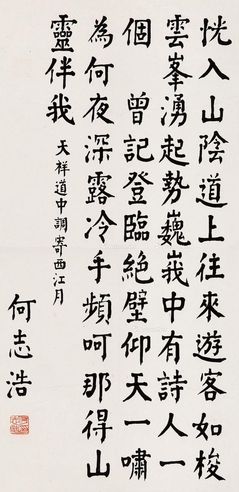 恍入山陰道上往來遊客如梭
雲峯湧起勢巍峩中有詩人一
個　曾記登臨絕壁仰天一嘯
為何夜深露冷手頻呵那得山
靈伴我
天祥道中調寄西江月
何志浩